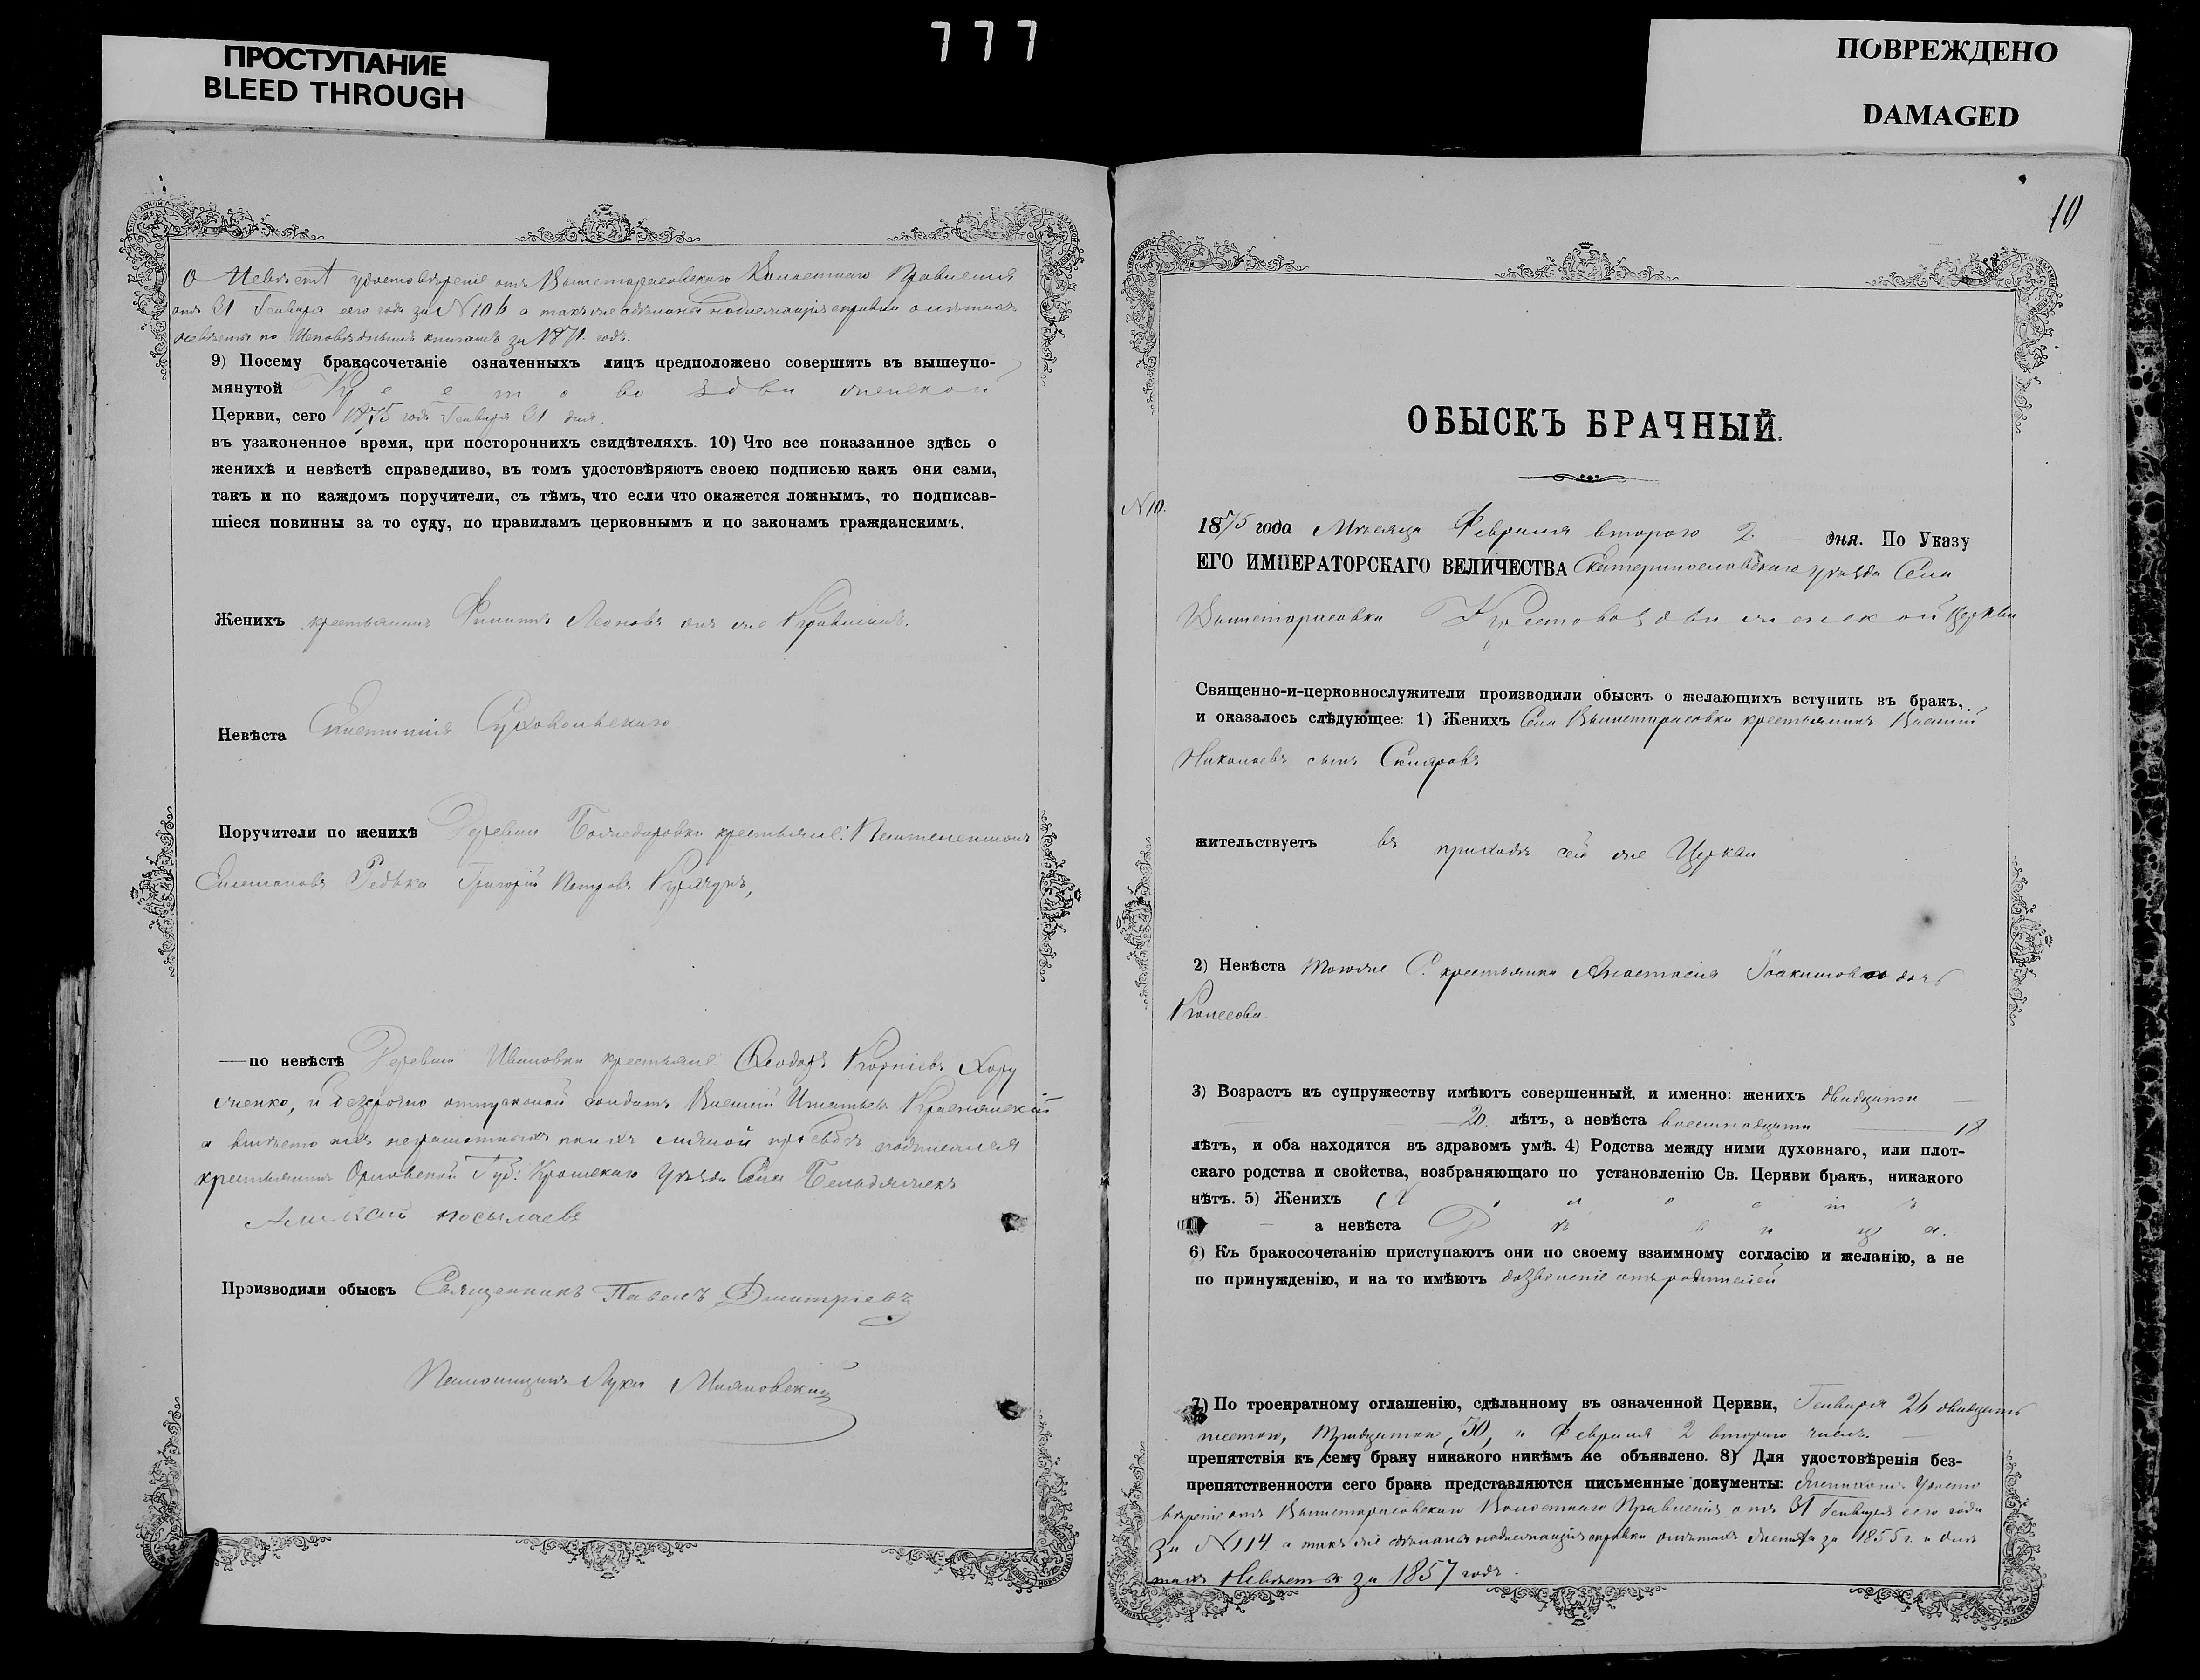 777
ПРОСТУПАНИЕ
BLEED THROUGH
ПОВРЕЖДЕНО
DAMAGED
О Невѣстѣ удостовѣреніе отъ Вышетарасовскаго Волостнаго Правленія
отъ 31 Генваря сего года за N 106 а также сдѣланы надлежащія справки о лѣтахъ
невѣсты по Исповѣднымъ книгамъ за 1871. годъ.
9) Посему бракосочетаніе означенныхъ лицъ предположено совершить въ вышеупо-
мянутой Крестовоздвиженской
Церкви, сего 1875 года Генваря 31 дня.
въ узаконенное время, при постороннихъ свидѣтеляхъ. 10) Что все показанное здѣсь о
женихѣ и невѣстѣ справедливо, въ томъ удостовѣряютъ своею подписью какъ они сами,
такъ и по каждомъ поручители, съ тѣмъ, что если что окажется ложнымъ, то подписав-
шіеся повинны за то суду, по правиламъ церковнымъ и по законамъ гражданскимъ.
Женихъ крестьянинъ Филиппъ Леоновъ онъ же
Невѣста
Поручители по женихѣ Деревни крестьяне:
Степановъ Редька Григорій Петровъ
—по невѣстѣ Деревни Ивановки крестьяне: Ѳеодоръ Корніевъ Хору
женко, и безсрочно отпускной солдатъ Василій Игнатьевъ
а вмѣсто ихъ неграмотныхъ по ихъ личной прозьбѣ подписался
крестьянинъ Орловской Губ: Кромскаго Уѣзда Села
Производили обыскъ Священникъ Павелъ Дмитріевъ
Лука
10
ОБЫСКЪ БРАЧНЫЙ.
N 10.
1875 года Мѣсяца Февраля втораго 2 — дня. По Указу
ЕГО ИМПЕРАТОРСКАГО ВЕЛИЧЕСТВА Екатеринославскаго уѣзда Села
Вышетарасовки Крестовоздвиженской Церкви
Священно-и-церковнослужители производили обыскъ о желающихъ вступить въ бракъ,
и оказалось слѣдующее: 1) Женихъ Села Вышетарасовки крестьянинъ Василій
Николаевъ сынъ Скляровъ
жительствуетъ въ приходѣ сей же Церкви
2) Невѣста тогоже С. крестьянка Анастасія Іоакимова дочь
Колесова.
3) Возрастъ къ супружеству имѣютъ совершенный, и именно: женихъ двадцати —
20. лѣтъ, а невѣста восемнадцати — 18
лѣтъ, и оба находятся въ здравомъ умѣ. 4) Родства между ними духовнаго, или плот-
скаго родства и свойства, возбраняющаго по установленію Св. Церкви бракъ, никакого
нѣтъ. 5) Женихъ Холостъ
— а невѣста Дѣвица.
6) Къ бракосочетанію приступаютъ они по своему взаимному согласію и желанію, а не
по принужденію, и на то имѣютъ дозволеніе отъ родителей
7) По троекратному оглашенію, сдѣланному въ означенной Церкви, Генваря 26 двадцать
шестаго, тридцатаго, 30, и Февраля 2 втораго числъ. —
препятствія къ сему браку никакого никѣмъ не объявлено. 8) Для удостовѣренія без-
препятственности сего брака представляются письменные документы: Женихомъ Удосто
вѣреніе отъ Вышетарасовскаго Волостнаго Правленія отъ 31 Генваря сего года
за N 114. а также сдѣланы надлежащія справки о лѣтахъ Жениха за 1855 г. и о лѣ
тахъ Невѣсты за 1857 годъ.